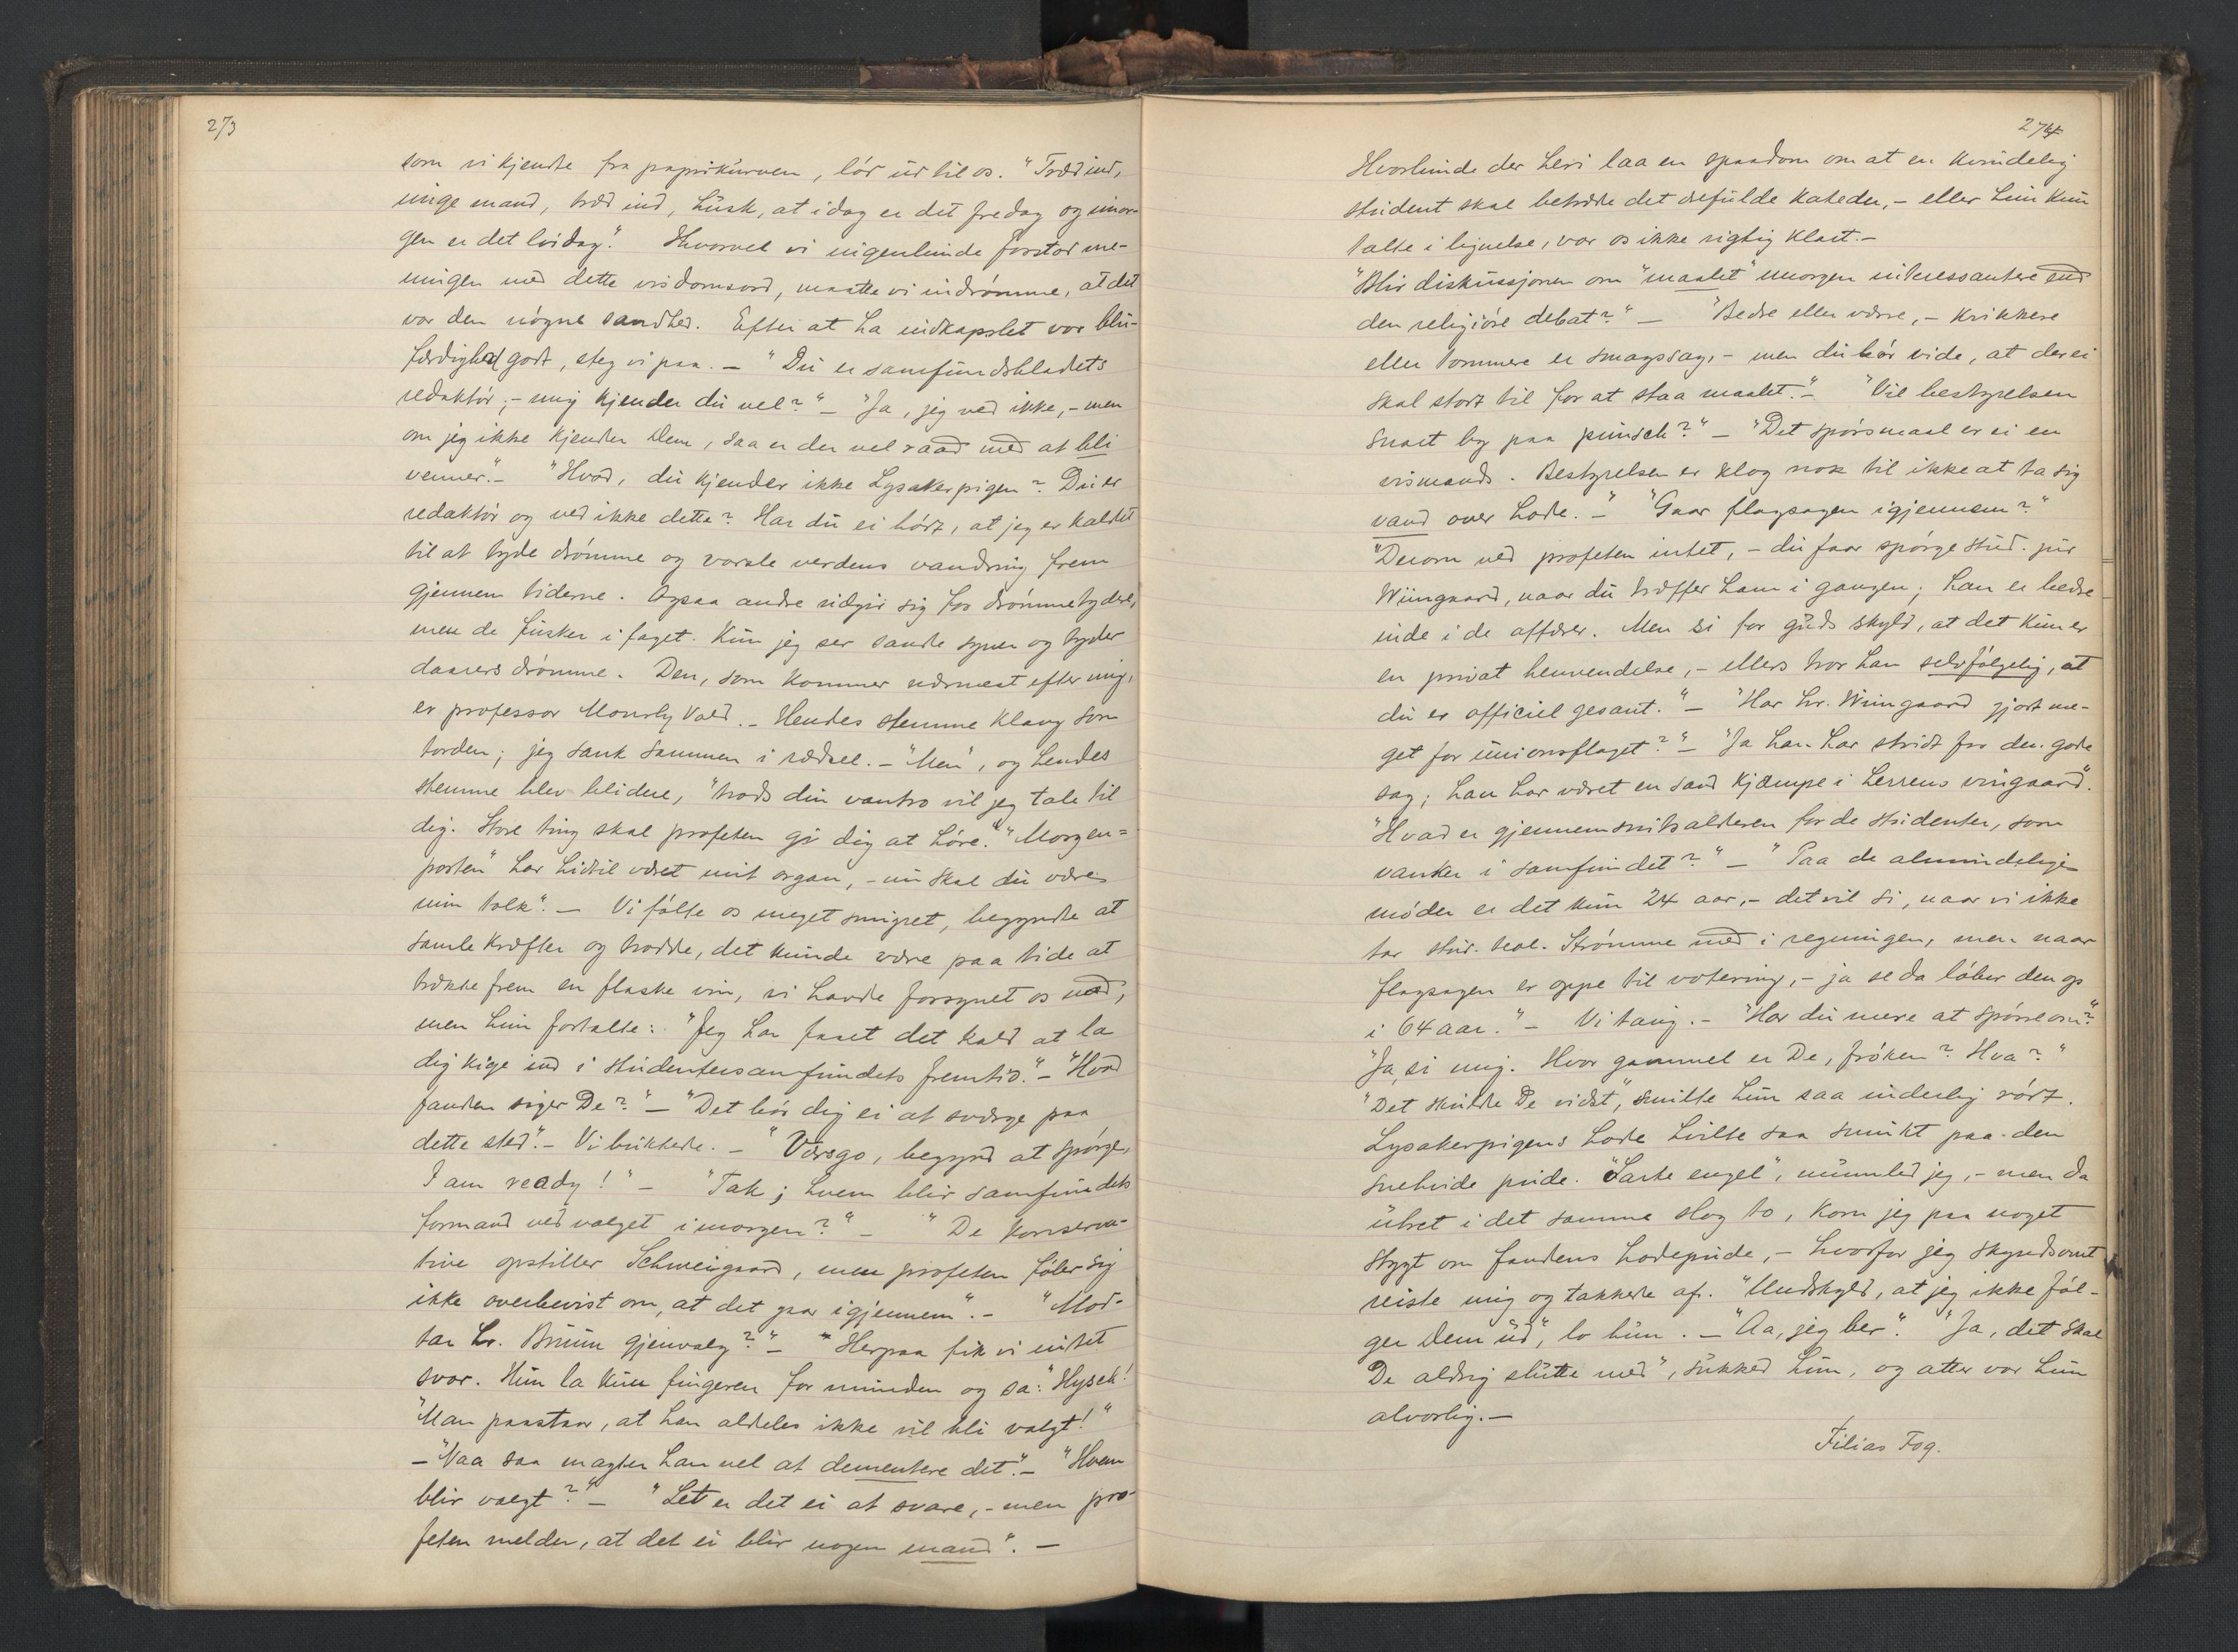 273
som vi kjendte fra paprikurven, lød ud til os. "Træd ind,
unge mand, træd ind, husk, at idag er det fredag og imor-
gen er det lørdag." Hvorvel vi ingenlunde forstod me-
ningen med dette visdomsord, maatte vi indrømme, at det
var den nøgne sandhed. Efter at ha indkapslet vor blu-
færdighed godt, steg vi paa. – "Du er samfundsbladets
redaktør; – mig kjender du vel?" – "Ja, jeg ved ikke, – men
om jeg ikke kjender Dem, saa er der vel raad med at bli
venner." – "Hvad, du kjender ikke Lysakerpigen? Du er
redaktør og ved ikke dette? Har du ei hørt, at jeg er kaldet
til at tyde drømme og varsle verdens vandring frem
gjennem tiderne. Ogsaa andre udgir sig for drømmetydere,
men de fusker i faget. Kun jeg ser sande syner og tyder
daarers drømme. Den, som kommer nærmest efter mig,
er professor Monrly Vold. – Hendes stemme klang som
torden; jeg sank sammen i rædsel. – "Men", og hendes
stemme blev blidere, "trods din vantro vil jeg tale til
dig. Store ting skal profeten gi dig at høre." "Morgen=
posten" har hidtil været mit organ, – nu skal du være
min tolk". – Vi følte os meget smigret, begyndte at
samle kræfter og trodde, det kunde være paa tide at
trække frem en flaske vin, vi havde forsynet os med,
men hun fortalte: "Jeg har faaet det kald at la
dig kige ind i studentersamfundets fremtid." – "Hvad
fanden siger De?" – "Det bør dig ei at sværge paa
dette sted". – Vi bukkede. – "Værsgo, begynd at spørge,
I am ready!" – "Tak; hvem blir samfundets
formand ved valget imorgen?" – "De konserva-
tive opstiller Schweigaard, men profeten føler sig
ikke overbevist om, at det gaar igjennem". – "Mod-
tar hr. Bruun gjenvalg?" – "Herpaa fik vi intet
svar. Hun la kun fingeren for munden og sa: "Hysch!
"Man paastaar, at han aldeles ikke vil bli valgt!"
– "Naa saa magter han vel at dementere det". – "Hvem
blir valgt?" – "Let er det ei at svare, – men pro-
feten melder, at det ei blir nogen mand". –
274
Hvorhuvidt der heri laa en spaadom om at en kvindelig
student skal betræde det ærefulde kateder, – eller hun kun
talte i lignelse, var os ikke rigtig klart. –
"Blir diskussjonen om "maalet" imorgen interessantere end
den religiøse debat?" – "Bedre eller værre, – krikkere
eller tommere er smagssag, – men du bør vide, at der ei
skal stort til for at staa maalet." – "Vil bestyrelsen
snart by paa punsch?" – "Det spørsmaal er ei en
vismands. Bestyrelsen er klog nok til ikke at ta sig
vand over hode." – "Gaar flagsagen igjennem?"
"Derom ved profeten intet, – du faar spørge stud. jur
Wiingaard, naar du træffer ham i gangen; han er bedre
inde i de affærer. Men si for guds skyld, at det kun er
en privat henvendelse, – ellers tror han selvfølgelig, at
du er officiel gesant." – "Har hr. Wiingaard gjort me-
get for unionsflaget?" – "Ja han har stridt for den gode
sag; han har været en sand kjæmpe i herrens vingaard".
"Hvad er gjennemsnitsalderen for de studenter, som
vanker i samfundet?" – "Paa de almindelige
møder er det kun 24 aar, – det vil si, naar vi ikke
tar stud. teol. Strømme med i regningen, men naar
flagsagen er oppe til votering, – ja se da løber den op
i 64 aar." – Vi taug. – "Har du mere at spørre om?"
"Ja, si mig. Hvor gammel er De, frøken? Hva?"
"Det skulde De vidst", smilte hun saa inderlig rørt.
Lysakerpigens hode hvilte saa smukt paa den
snehvide pude. "Sarte engel", mumled jeg, – men da
uhret i det samme slog to, kom jeg paa noget
stygt om fandens hodepude, – hvorfor jeg skyndsomt
reiste mig og takkede af. "Undskyld, at jeg ikke føl-
ger Dem ud", lo hun. – "Aa, jeg ber". "Ja, det skal
De aldrig slutte med", sukked hun, og atter var hun
alvorlig. –
Filias Fog.